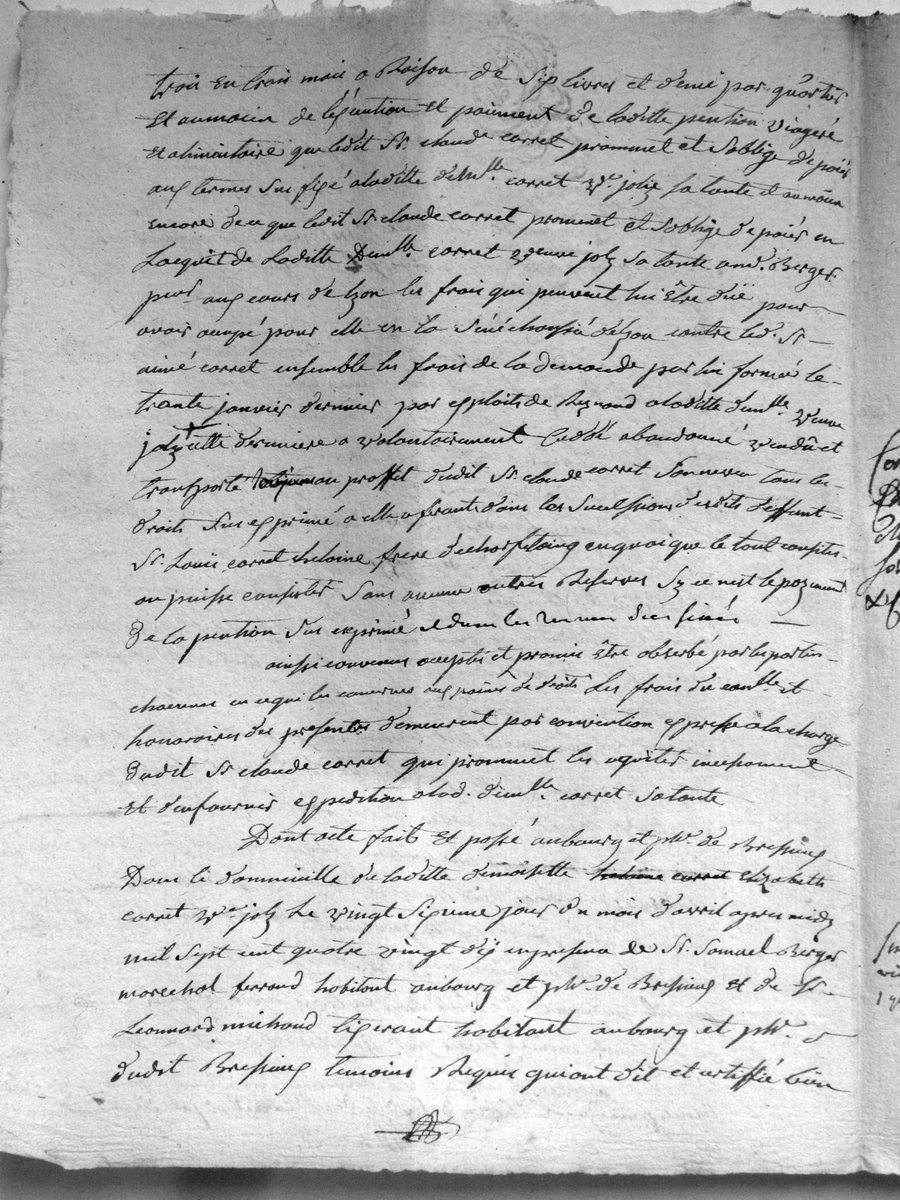 trois en trois mois a Raison de sip livres et demi par quartier
Et aumoien de lexeution Et paiment de laditte pention viagere
Et alimentaire que ledit Sr. claude carret prommet et soblige de paier
aux termes sus fixé a laditte demlle. carret ve. joly sa tante et aumoien
encore de ce que ledit Sr claude carret promet et soblige de paier en
Lacquit de Laditte Demlle. carret veuve joly sa tante aud. Berger
pur. aux cours de lyon les frais qui peuvent lui être dûë pour
avoir ocupé pour elle en la Sénéchaussé de lyon contre led. Sr
aimé carret ensemble les frais de la demande par lui formée le
trante janvier dernier par exploits de Reynaud a laditte demlle veuve
joly cette derniere a volontairement Cedé abandonné vendû et
transporté au proffit dudit Sr. claude carret Son neveu tous les
droits Sus exprimé a elle afrants dans les Sucessions desdits deffunt
Sr. Louis carret frere enquoi que le tout consiste
ou puisse consister Sans aucune autres Reserves Sy ce nest le payement
De la pention Sus exprimé
ainsi convenus acceptés et promis Être observé par les parties
chacunes en ce qui les concernes aux peines de droits Les frais du conlle. et
honoraires des presentes demeurent par convention expresse a la charge
dudit Sr claude carret qui prommet les aquiter incessament
Et d'enfournir expedition alad. demlle. carret sa tante
Dont acte fait et passé aubourg et psse. de Bressieux
Dans le dommicille de laditte demoiselle Elizabeth
carret ve joly Le vingt Sixieme jour du mois d'avril apres midy
mil sept cent quatre vingt dix en presence de Sr. Samuel Berger
marechal ferrand habitant aubourg et psse. de Bressieux Et de Sr
Leonnard michaud habitant aubourg et psse.
dudit Bressieux temoins Requis qui ont dit et certiffié bien